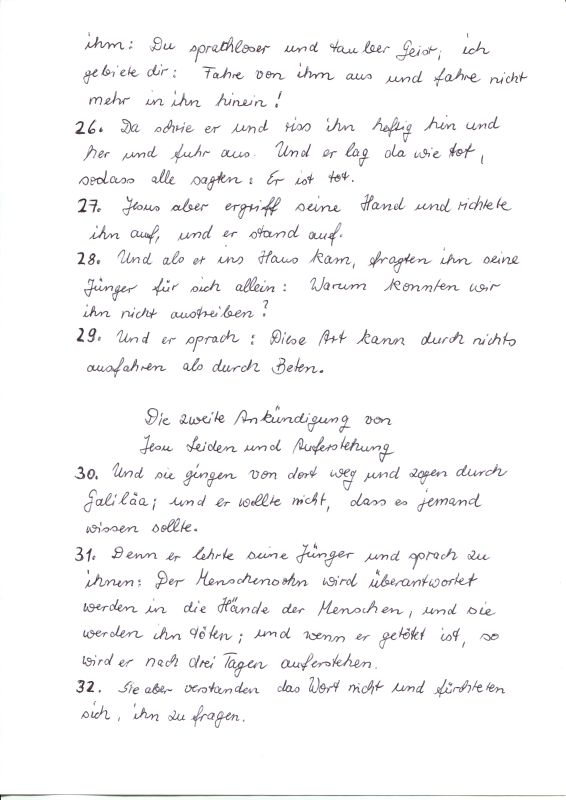 ihm: Du sprachloser und tauber Geist, ich
gebiete dir: Fahre von ihm aus und fahre nicht
mehr in ihn hinein!
26. Da schrie er und riss ihn heftig hin und
her und fuhr aus. Und er lag da wie tot,
sodass alle sagten: Er ist tot.
27. Jesus aber ergriff seine Hand und richtete
ihn auf, und er stand auf.
28. Und als er ins Haus kam, fragten ihn seine
Jünger für sich allein: Warum konnten wir
ihn nicht austreiben?
29. Und er sprach: Diese Art kann durch nichts
ausfahren als durch Beten.
Die zweite Ankündigung von
Jesu Leiden und Auferstehung
30. Und sie gingen von dort weg und zogen durch
Galiläa; und er wollte nicht, dass es jemand
wissen sollte.
31. Denn er lehrte seine Jünger und sprach zu
ihnen: Der Menschensohn wird überantwortet
werden in die Hände der Menschen, und sie
werden ihn töten; und wenn er getötet ist, so
wird er nach drei Tagen auferstehen.
32. Sie aber verstanden das Wort nicht und fürchteten
sich, ihn zu fragen.